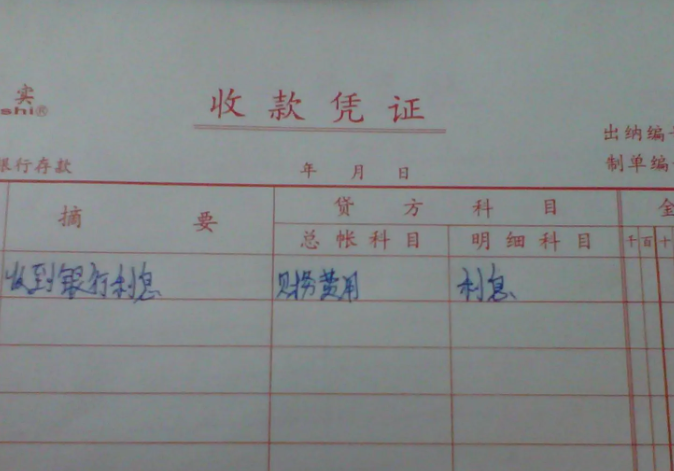 实
shi®
收款凭证
出纳编
银行存款 年 月 日 制单编
摘要 贷方科目 金
总帐科目 明细科目 千 百 十
收到银行利息 财务费用 利息